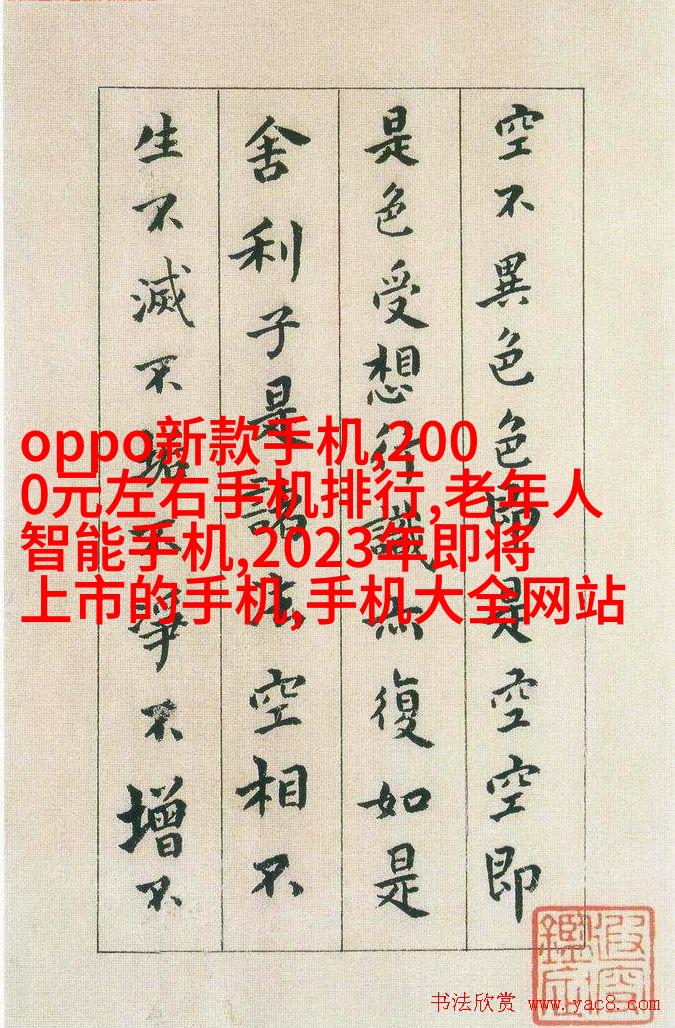 空不異色色即是空空即
是色受想行識亦復如是
舍利子是諸法空相不
生不滅不垢不淨不增不
oppo新款手机,200
0元左右手机排行,老年人
智能手机,2023年即将
上市的手机,手机大全网站
书法欣赏 www.yac8.com